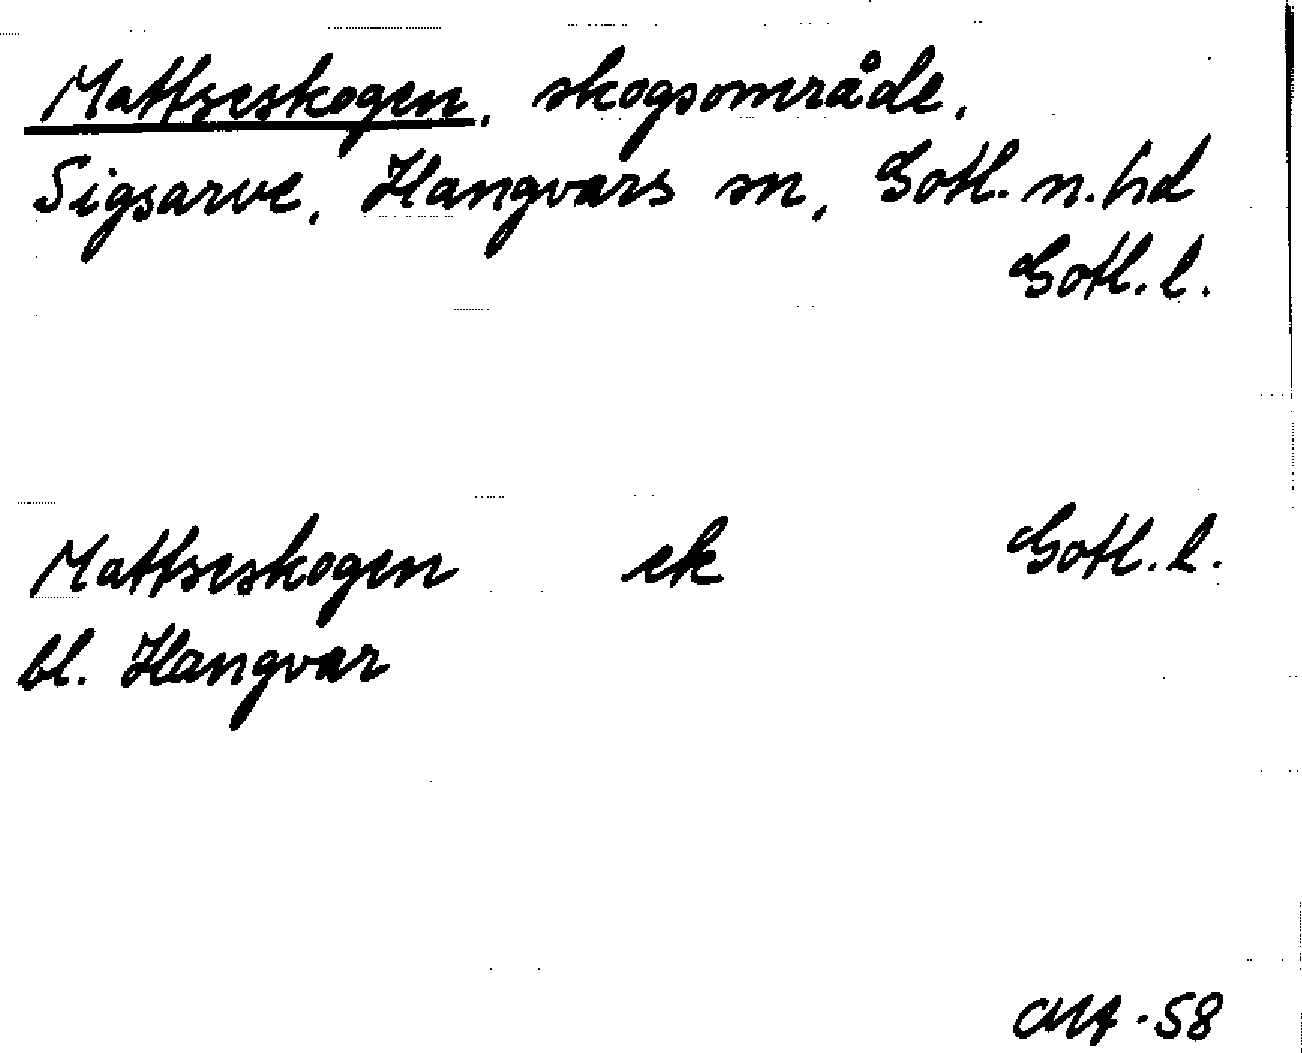 Mattseskogen, skogsområde,
Sigsarve, Hangvars sn, Gotl. n. hd
Gotl. l.
Mattseskogen ek Gotl. l.
bl. Hangvar
58